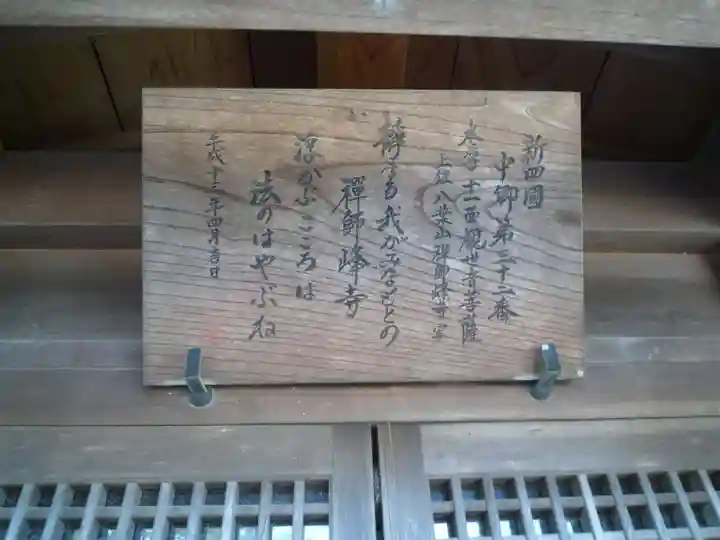 新四國
中郷 第三十二番
本尊 十一面観世音菩薩
土佐 八葉山禅師峰寺写
静かなる我がみなもとの
禪師峰寺
浮かぶこころは
法のはやぶね
平成十二年四月吉日